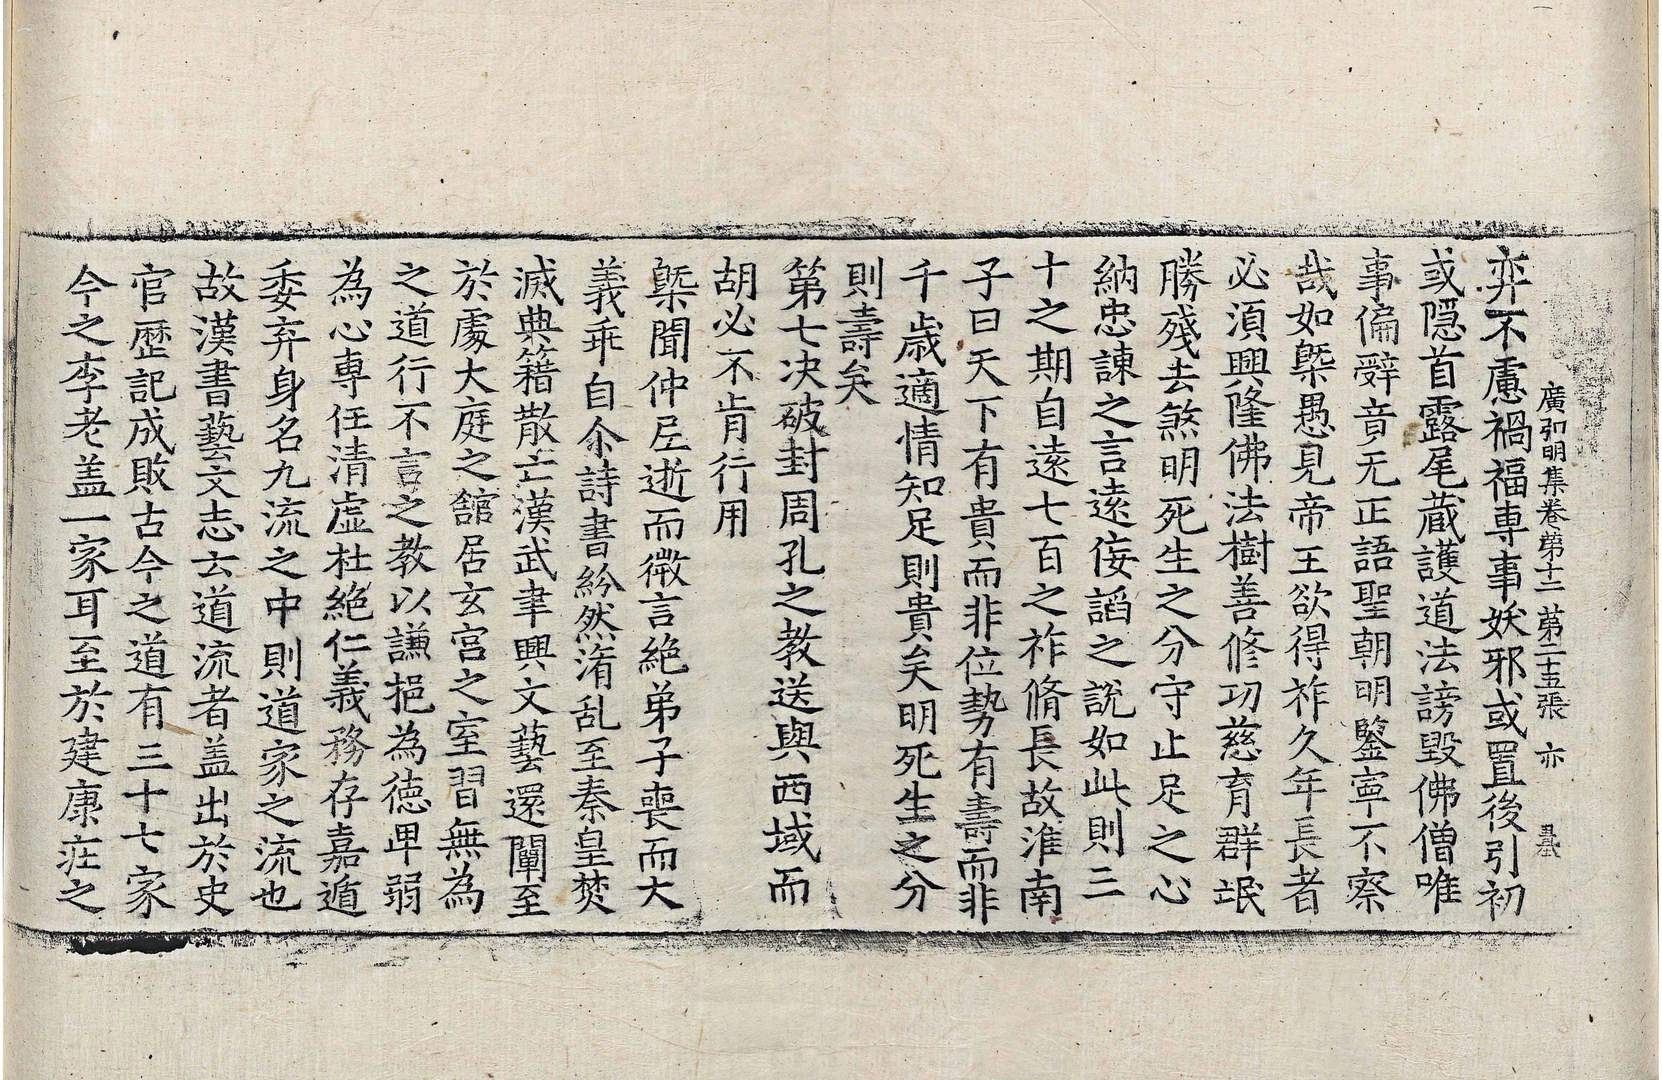 廣弘明集卷第十二 第二十五張 亦
弈不慮禍福專事妖邪或置後引初
或隠首露尾蔵護道法謗毀佛僧唯
事偏辭音无正語聖朝明鑒寧不察
哉如槩愚見帝王欲得祚久年長者
必湏興隆佛法樹善修功慈育群氓
勝殘去煞明死生之分守止足之心
納忠諌之言逺侫謟之說如此則三
十之期自逺七百之祚脩長故淮南
子曰天下有貴而非位勢有壽而非
千歳適情知足則貴矣明死生之分
則壽矣
第七决破封周孔之教送與西域而
胡必不肯行用
槩聞仲尼逝而微言絶弟子喪而大
義乖自尒詩書紛然淆乱至秦皇焚
滅典籍散亡漢武聿興文藝還闡至
於處大庭之舘居玄宮之室習無為
之道行不言之教以謙挹為徳卑弱
為心專任清虚杜絶仁義務存嘉遁
委弃身名九流之中則道家之流也
故漢書藝文志云道流者盖出於史
官歴記成敗古今之道有三十七家
今之李老盖一家耳至於建康莊之